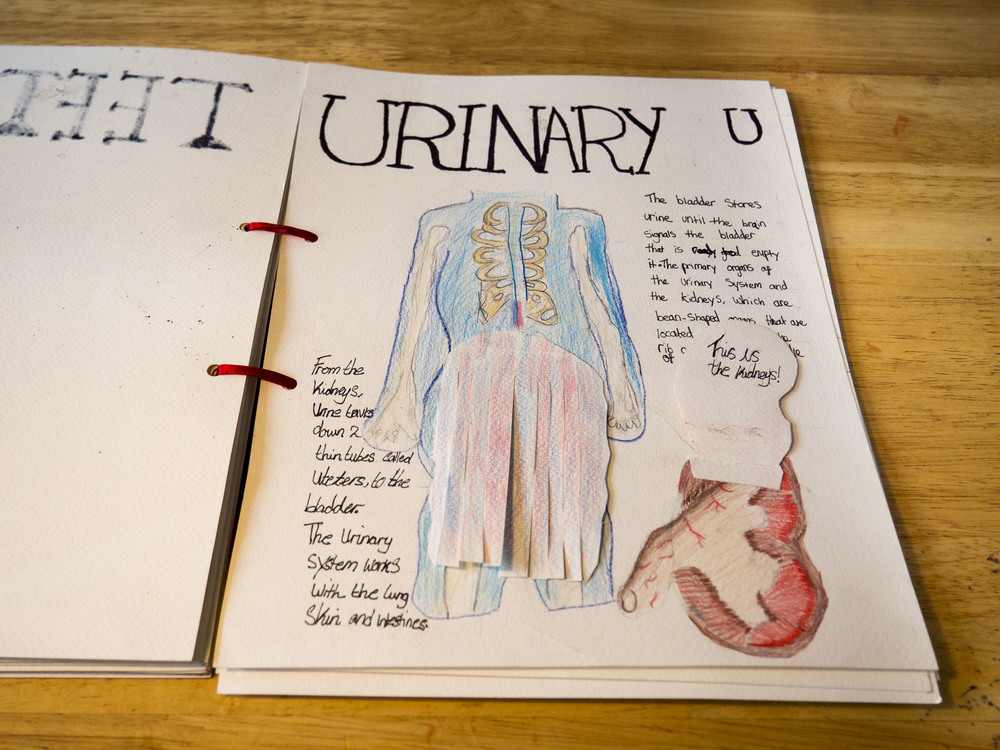 URINARY
U
The bladder Stores
urine until the brain
signals the bladder
that is empty
it. The primary organs of
the Urinary System and
the kidneys, which are
bean-shaped that are
located
rib
of
This is
the kidneys!
From the
kidneys,
Urine leaves
down 2
thin tubes called
Uteters, to the
bladder.
The Urinary
System works
with the lung
Skin and intestines.